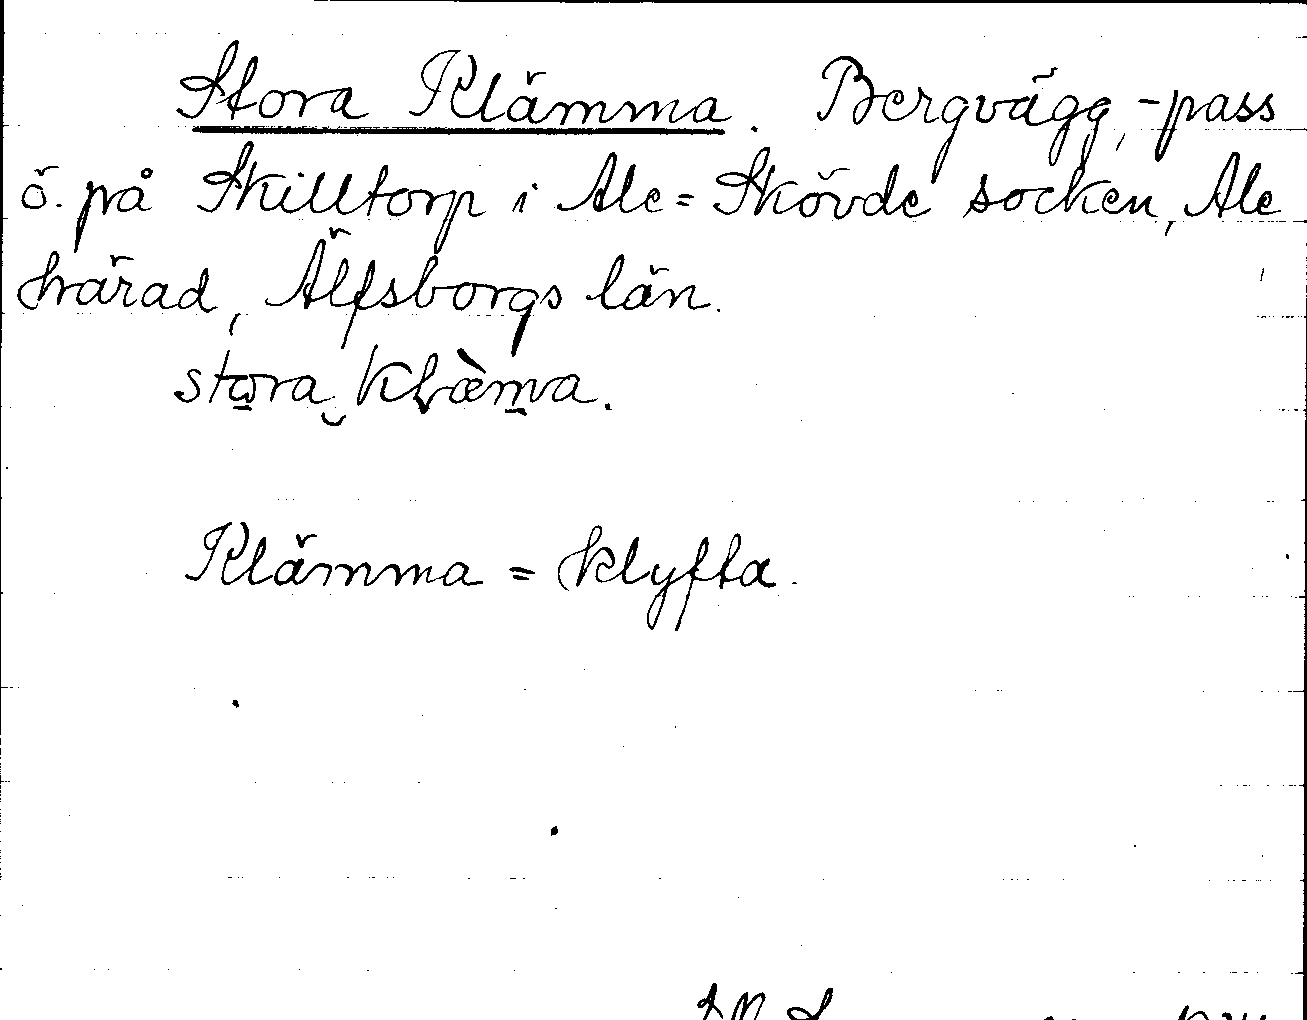 Stora Klämma. Bergvägg, -pass
ö. på Skilltorp i Ale-Skövde socken, Ale
härad, Älfsborgs län.
Klämma = klyfta.